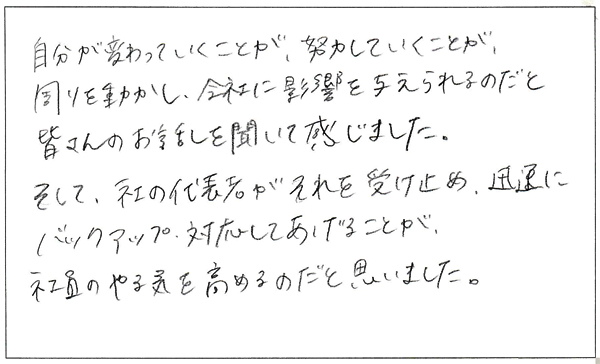 自分が変わっていくことが、努力していくことが、
周りを動かし、会社に影響を与えられるのだと
皆さんのお話しを聞いて感じました。
そして、社の代表者がそれを受け止め、迅速に
バックアップ・対応してあげることが、
社員のやる気を高めるのだと思いました。